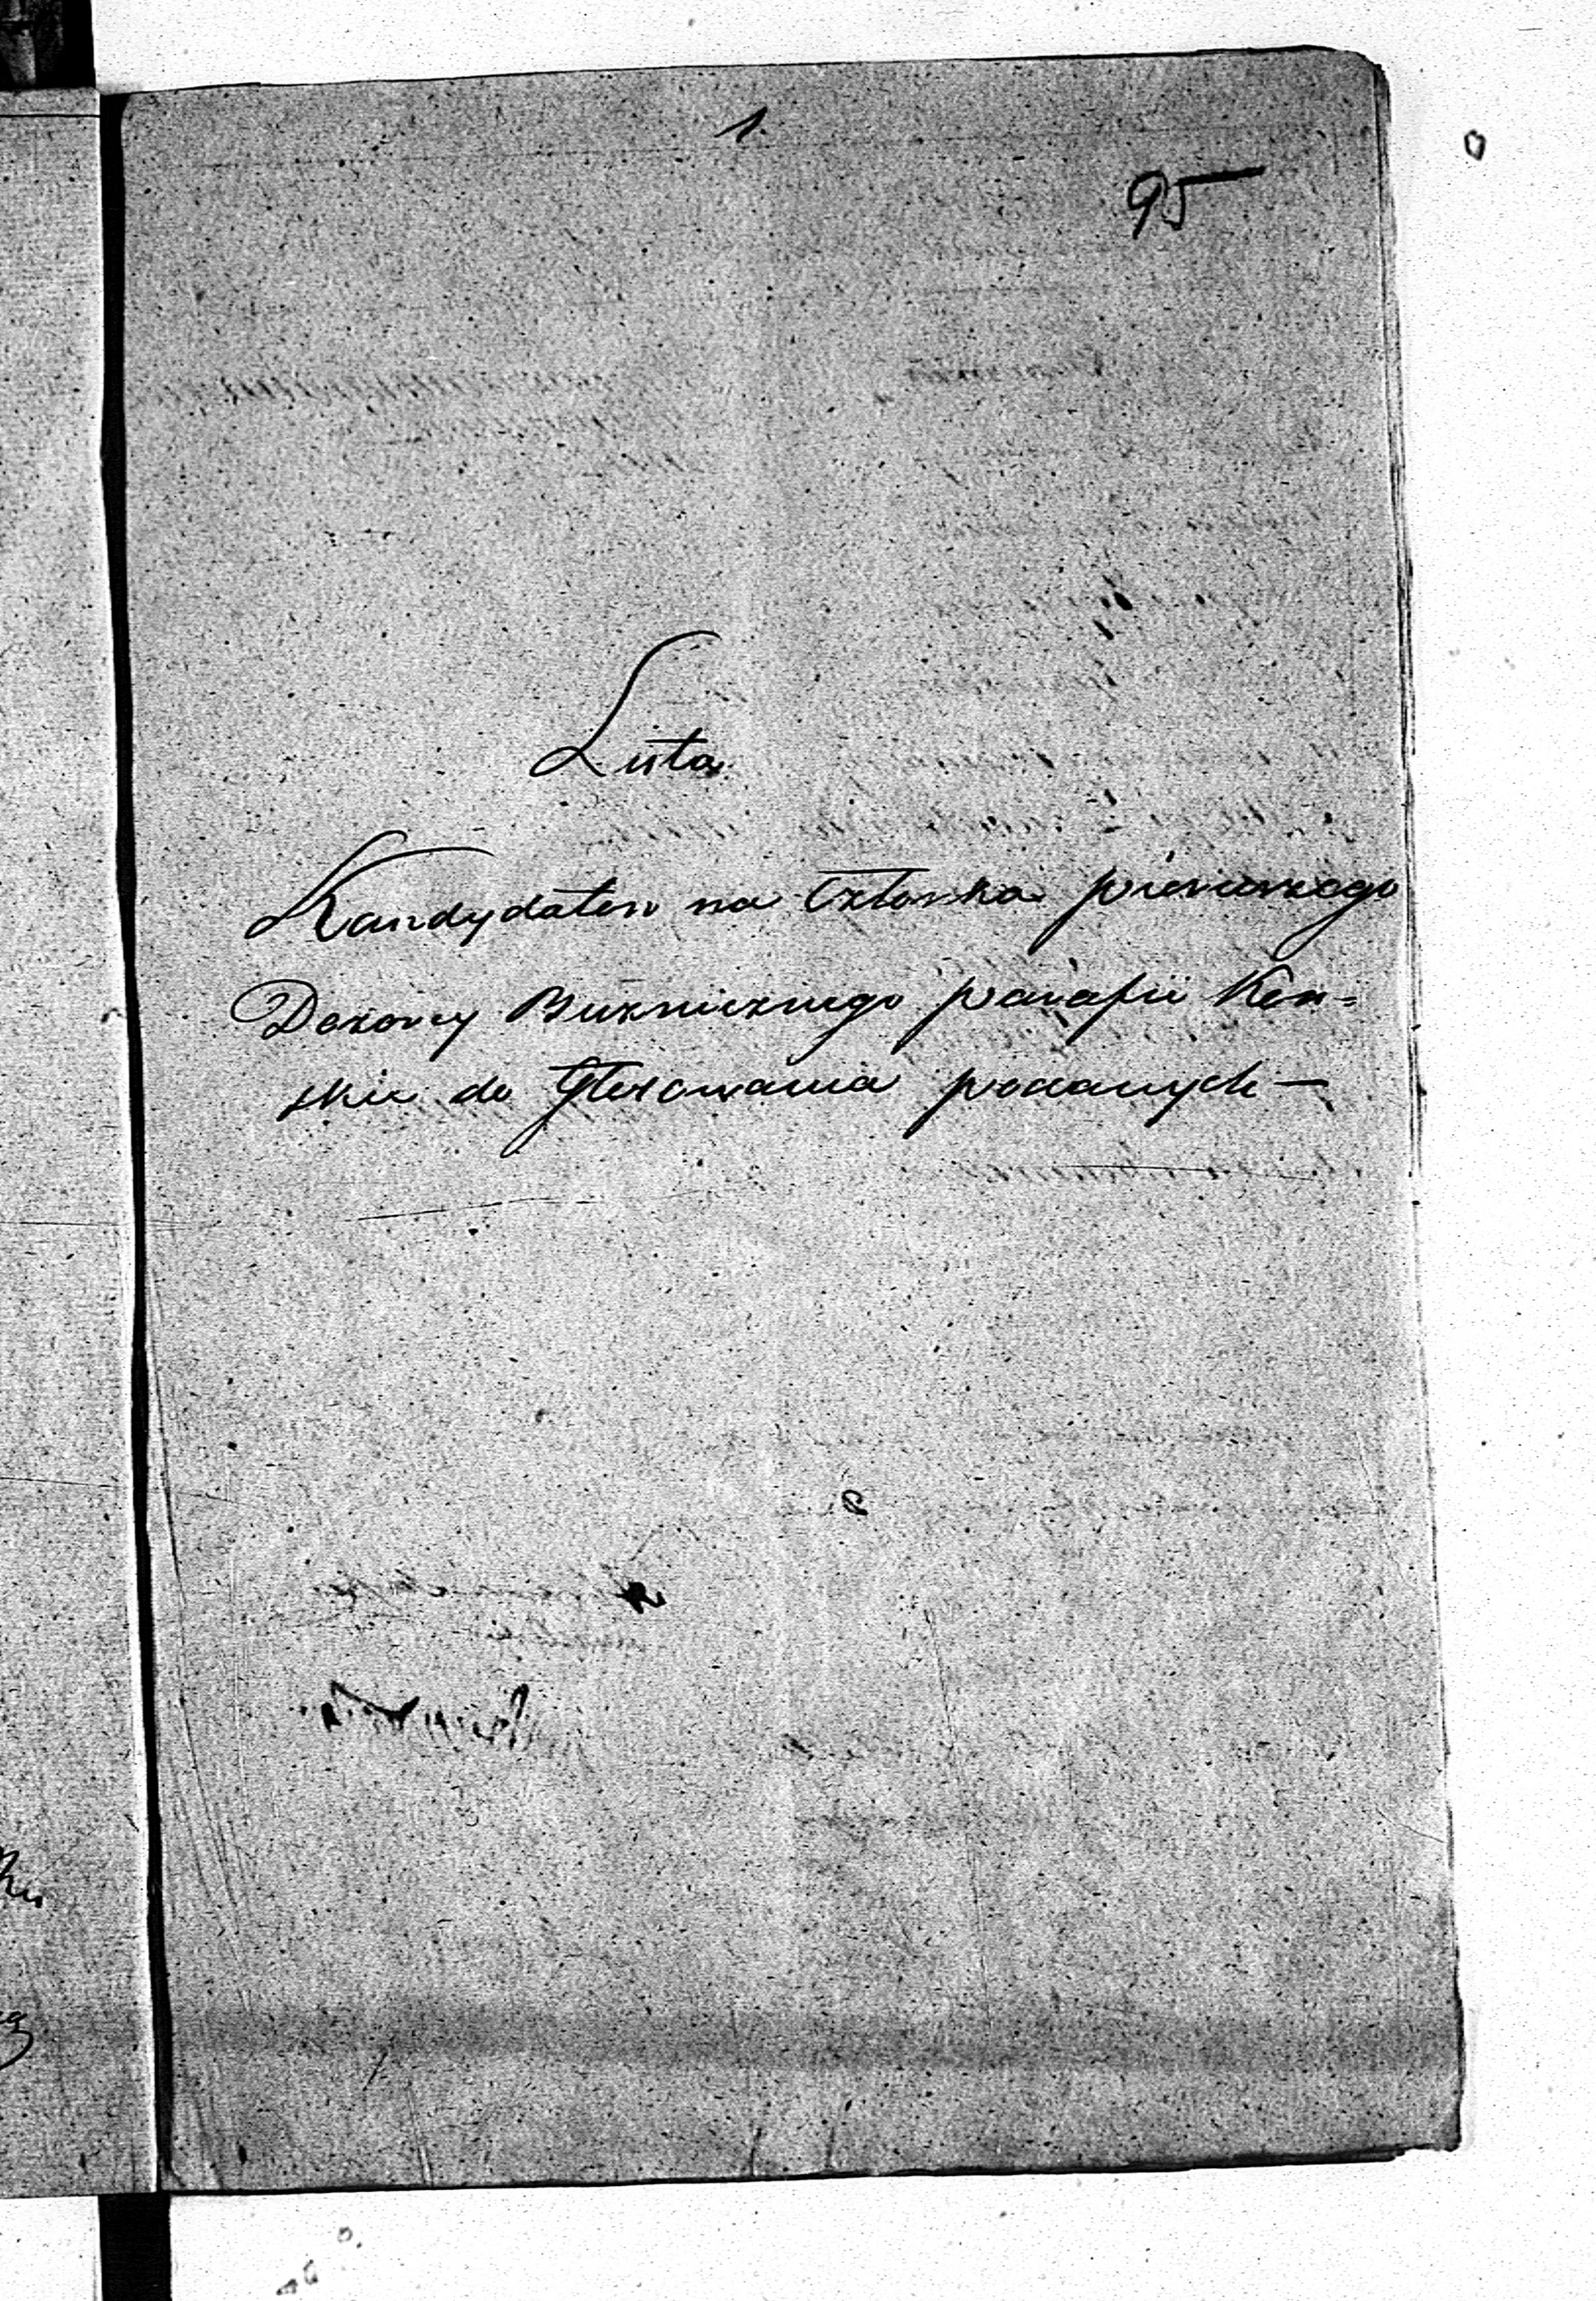 1.
95
Lista
Kandydatów na Członka pierwszego
Dozoru Bużnicznego parafii Koń=
skie do Głosowania podanych —